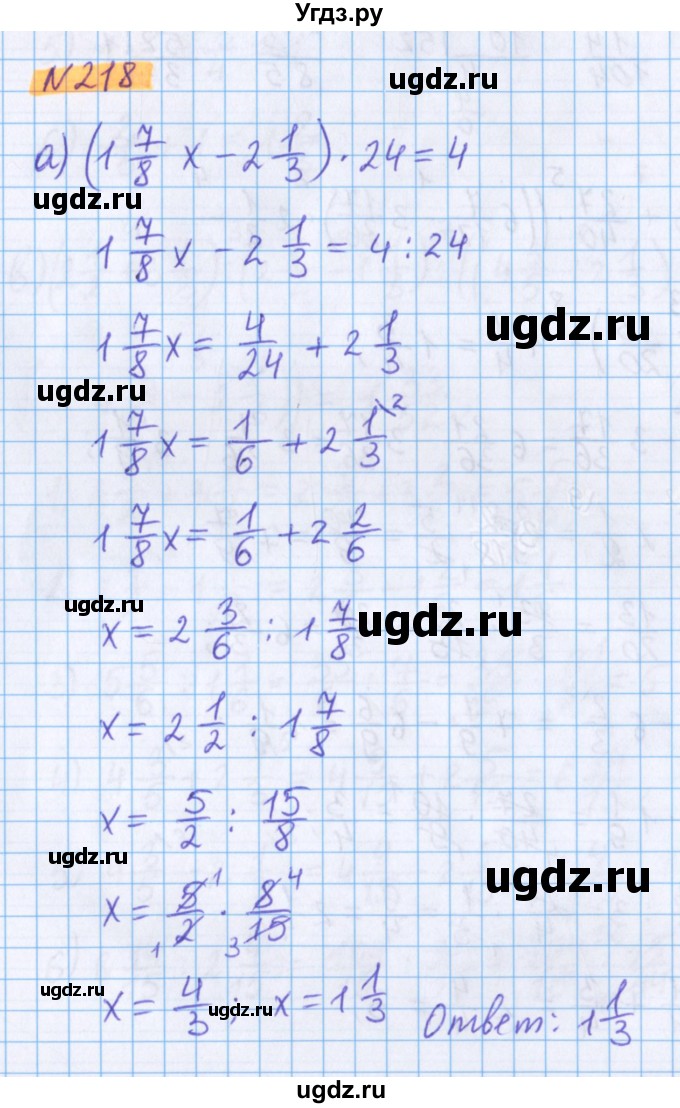 Угдз.ру
N218
ugdz.ru
а) (1 7/8 x - 2 1/3) · 24 = 4
ugdz.ru
1 7/8 x - 2 1/3 = 4 : 24
ugdz.ru
1 7/8 x = 4/24 + 2 1/3
ugdz.ru
1 7/8 x = 1/6 + 2 1/3 \2
1 7/8 x = 1/6 + 2 2/6
ugdz.ru
x = 2 3/6 : 1 7/8
ugdz.ru
x = 2 1/2 : 1 7/8
x = 5/2 : 15/8
ugdz.ru
ugdz.ru
x = 5 1/2 1 · 8 4/15 3
ugdz.ru
x = 4/3 ; x = 1 1/3
ugdz.ru
Ответ: 1 1/3
ugdz.ru